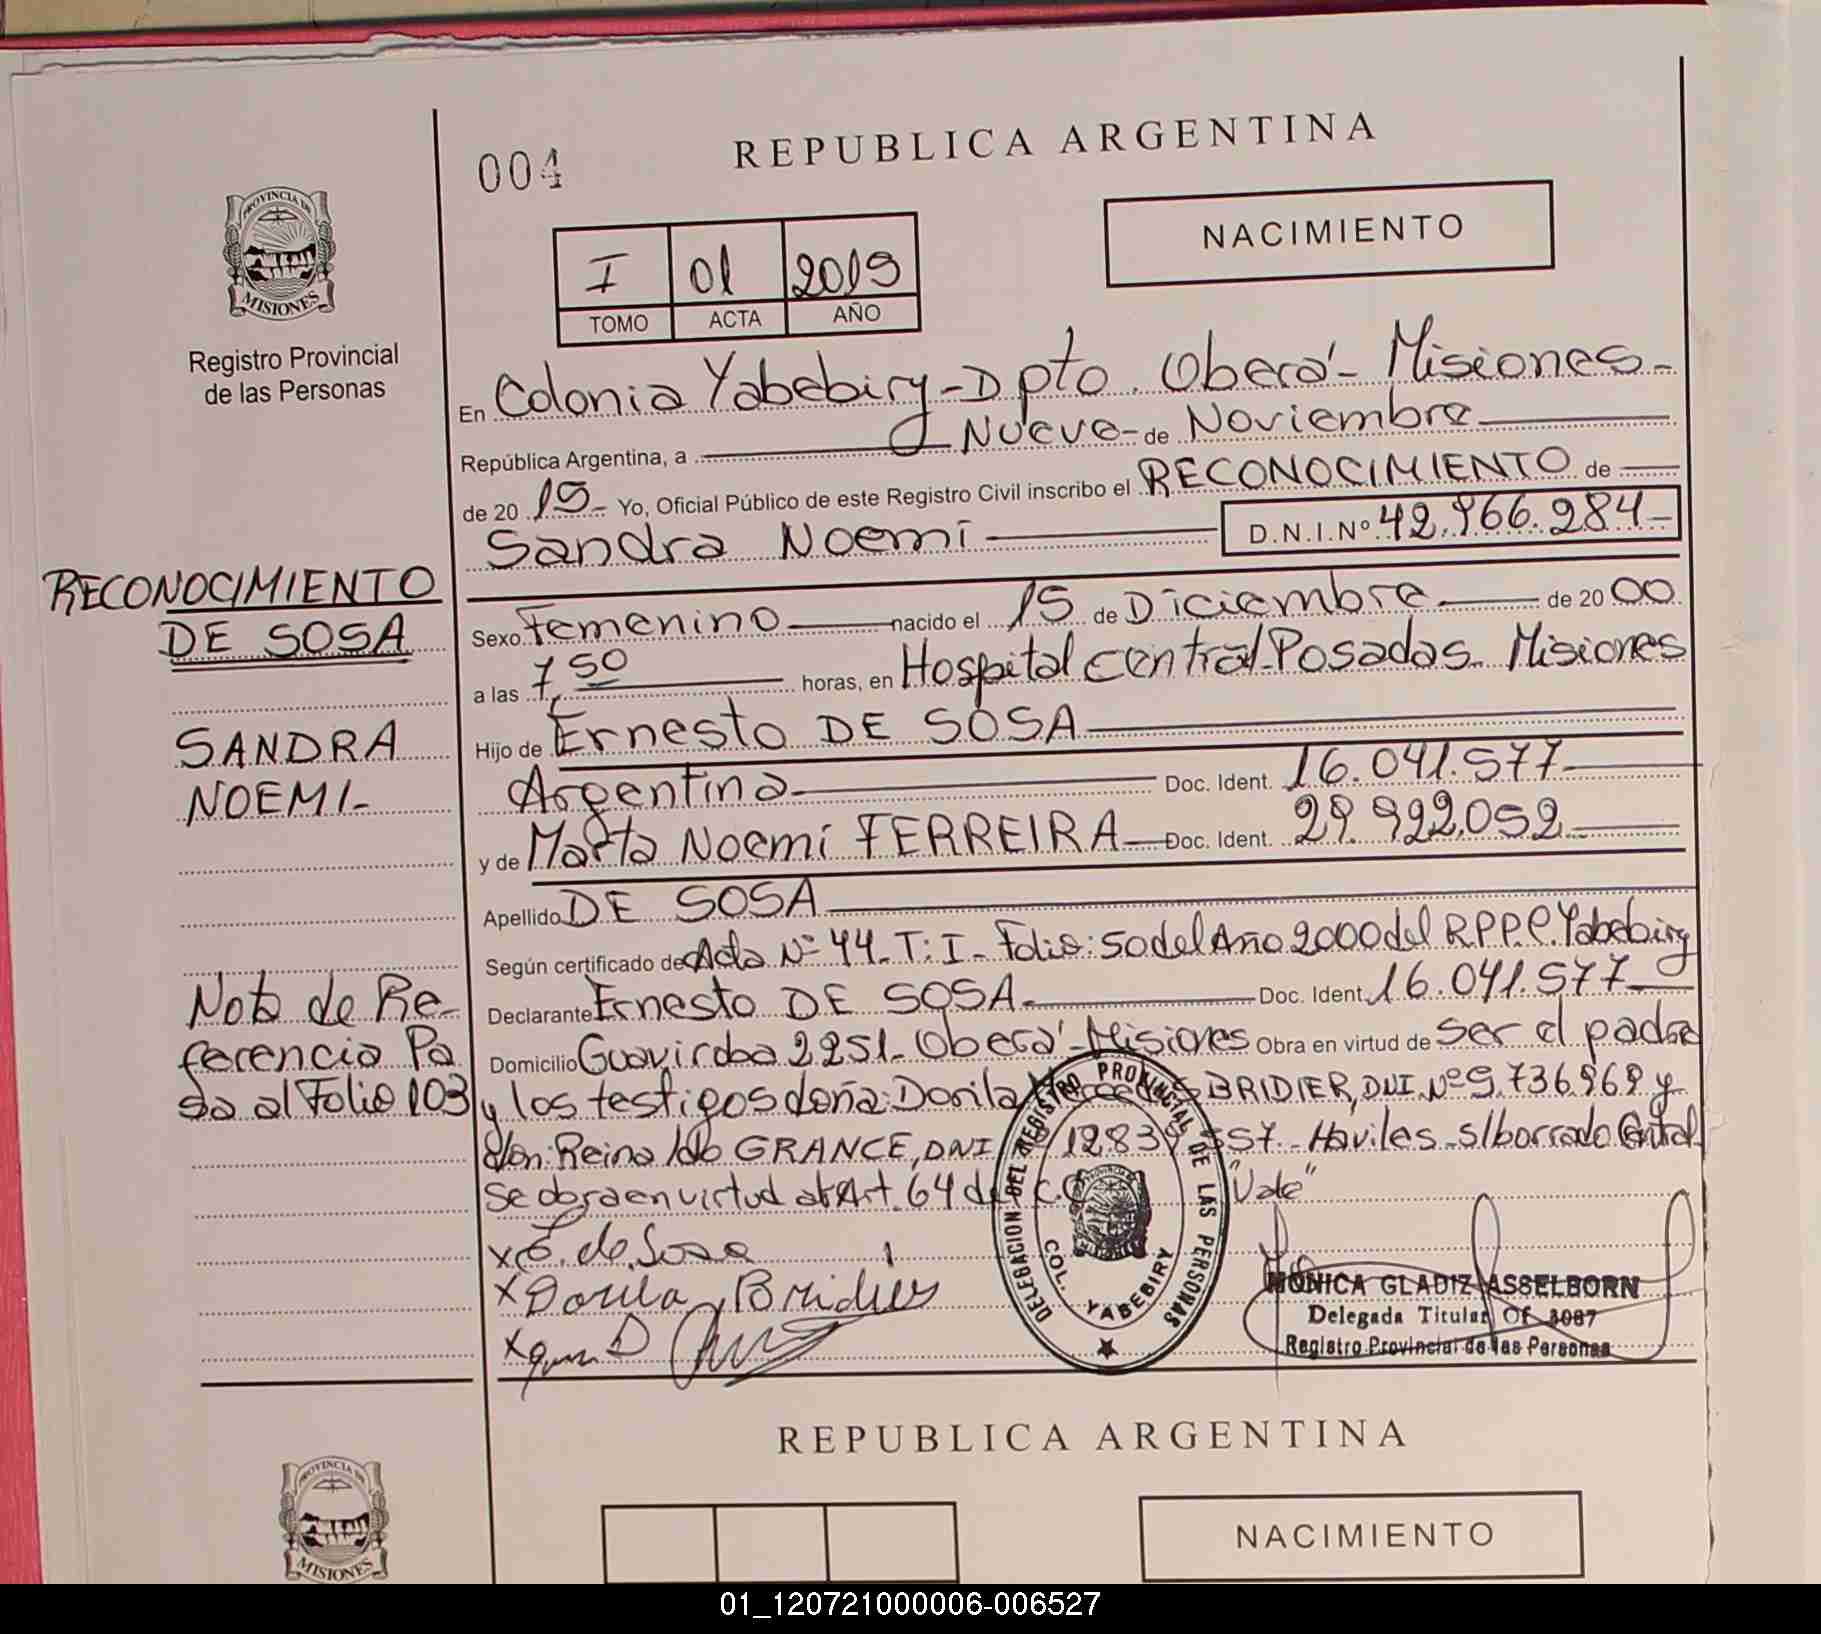 004
REPUBLICA ARGENTINA
PROVINCIA DE
MISIONES
Registro Provincial
de las Personas
NACIMIENTO
I 01 2019
TOMO ACTA AÑO
En Colonia Yabebiry - Dpto. Oberá - Misiones -
República Argentina, a Nueve - de Noviembre
de 20 19 - Yo, Oficial Público de este Registro Civil inscribo el RECONOCIMIENTO de
Sandra Noemí D.N.I.Nº 42.966.284 -
RECONOCIMIENTO
DE SOSA
SANDRA
NOEMI -
Nota de Re-
ferencia Pa
sa al Folio 103
Sexo Femenino nacido el 15 de Diciembre de 20 00
a las 7,50 horas, en Hospital Central - Posadas - Misiones
Hijo de Ernesto DE SOSA
Argentina Doc. Ident. 16.041.577
y de Marta Noemí FERREIRA Doc. Ident. 29.922.052
Apellido DE SOSA
Según certificado de Acta Nº 44 - T: I - Folio: 50 del Año 2000 del R.P.P.C. Yabebiry
Declarante Ernesto DE SOSA Doc. Ident. 16.041.577
Domicilio Guaviroba 2251 - Oberá - Misiones Obra en virtud de ser el padre
y los testigos doña: Dorila BRIDIER, DNI. Nº 9.736.969 y
don: Reinaldo GRANCE, DNI 12.839.557 - Haviles - s/borrado Central
Se obra en virtud al Art. 64 del C.C. "Vale"
x E. de Sosa
x Dorila Bridier
x
DELEGACION DEL REGISTRO PROVINCIAL DE LAS PERSONAS
COL. YABEBIRY
MONICA GLADIZ ASSELBORN
Delegada Titular Of. 3087
Registro Provincial de las Personas
REPUBLICA ARGENTINA
PROVINCIA DE
MISIONES
NACIMIENTO
01_120721000006-006527